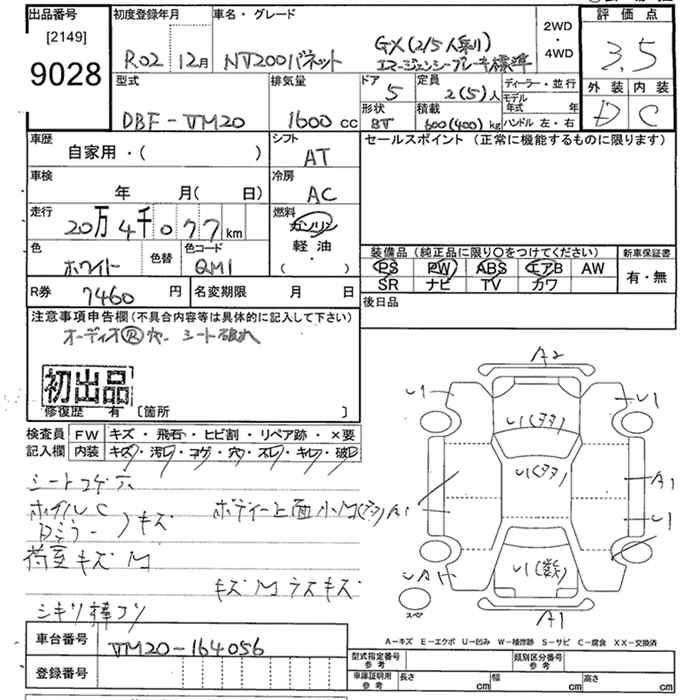 出品番号 初度登録年月 車名・グレード 2WD・4WD 評価点
[2149]
9028 R02 12月 NV200バネット GX(2/5人乗り) エマージェンシーブレーキ標準 3.5
型式 排気量 ドア 定員 ディーラー・並行 外装 内装
DBF-VM20 1600cc 5 2(5)人 モデル年式 年 D C
形状 積載 ハンドル 左・右
BV 600(400)kg
車歴 シフト セールスポイント(正常に機能するものに限ります)
自家用・( ) AT
車検 冷房
年 月( 日) AC
走行 燃料
20万4千077km ガソリン
軽油
( ・ )
色 色替 色コード 装備品(純正品に限り○をつけてください) 新車保証書
ホワイト QM1 PS PW ABS エアB AW 有・無
SR ナビ TV カワ
R券 7460円 名変期限 月 日 後日品
注意事項申告欄(不具合内容等は具体的に記入して下さい)
オーディオ穴 シート破れ
初出品
修復歴 有 [箇所 ]
検査員 FW キズ・飛石・ヒビ割・リペア跡・×要
記入欄 内装 キズ・汚レ・コゲ・穴・スレ・キレ・破レ
シートコゲ穴
ホイルC
キズ ボディー上面小
荷室キズM
キズM
A2
U1 U1
U1(多々)
U1(多々)
A1 A1
U1
U1(数)
スペア
A1
A-キズ E-エクボ U-凹み W-補修跡 S-サビ C-腐食 XX-交換済
車台番号 VM20-164056
登録番号
型式指定番号 参考 類別区分番号 参考
車庫証明用 参考 長さ cm 幅 cm 高さ cm